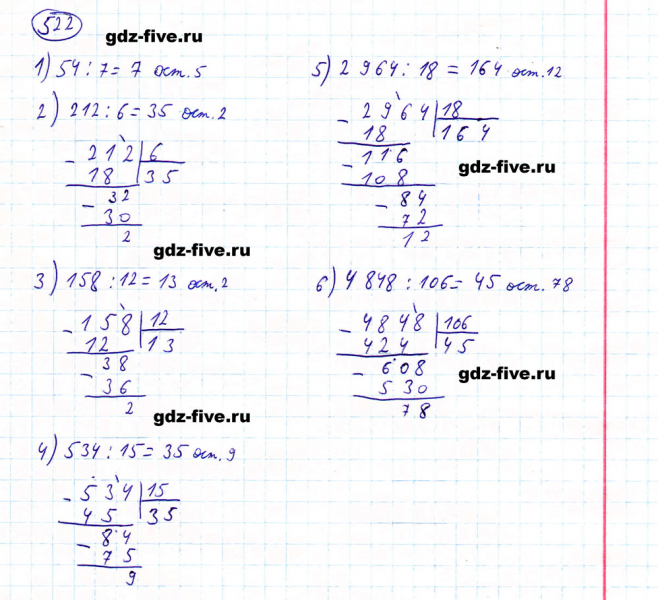 522
gdz-five.ru
1) 54 : 7 = 7 ост. 5
2) 212 : 6 = 35 ост. 2
- 212 | 6
18 | 35
- 32
30
2
gdz-five.ru
3) 158 : 12 = 13 ост. 2
- 158 | 12
12 | 13
- 38
36
2
gdz-five.ru
4) 534 : 15 = 35 ост. 9
- 534 | 15
45 | 35
- 84
75
9
5) 2 964 : 18 = 164 ост. 12
- 2964 | 18
18 | 164
- 116
108
- 84
72
12
gdz-five.ru
6) 4 848 : 106 = 45 ост. 78
- 4848 | 106
424 | 45
- 608
530
78
gdz-five.ru